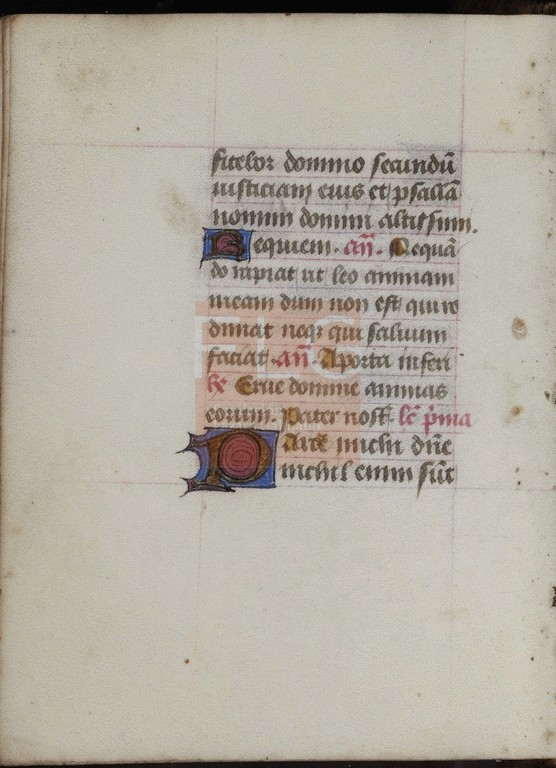 fitebor domino secundū
iusticiam eius et psallā
nomini domini altissimi.
Requiem. añ. Nequā
do rapiat ut leo animam
meam dum non est qui re
dimat neqȝ qui saluum
faciat. añ. A porta inferi
℟e Erue domine animas
eorum. Pater nost̄ lc̄ p̄ma
Parce michi dn̄e
nichil enim sūt